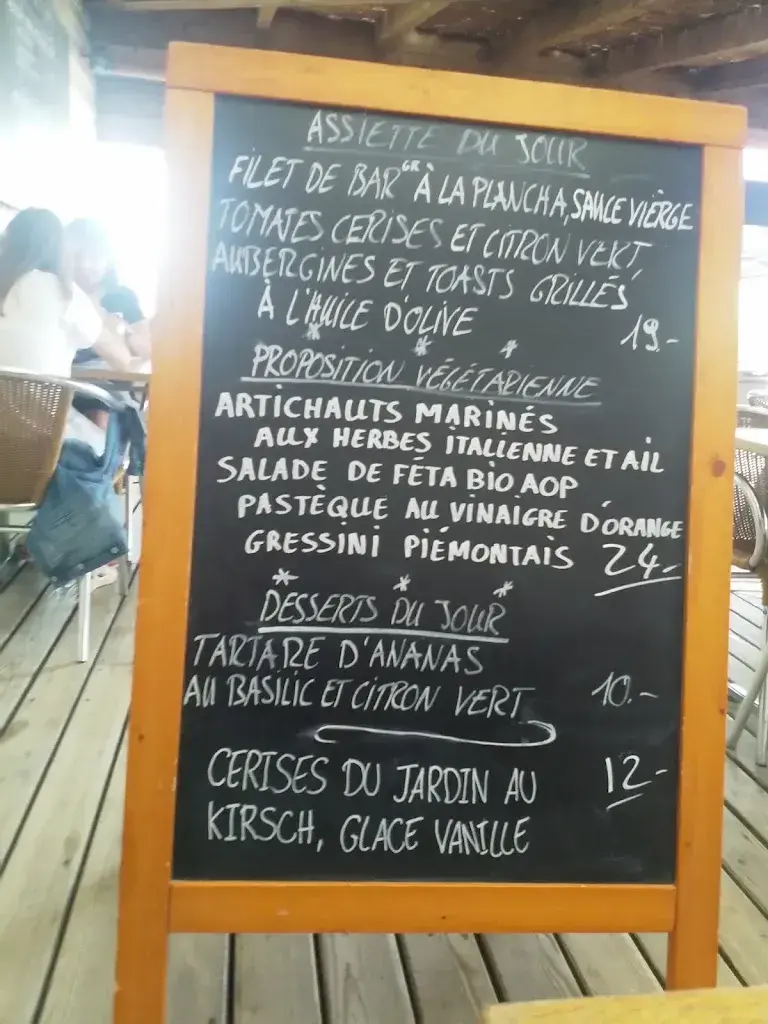 ASSIETTE DU JOUR
FILET DE BAR GR À LA PLANCHA, SAUCE VIERGE
TOMATES CERISES ET CITRON VERT,
AUBERGINES ET TOASTS GRILLÉS
À L'HUILE D'OLIVE 19.-
* * *
PROPOSITION VÉGÉTARIENNE
ARTICHAUTS MARINÉS
AUX HERBES ITALIENNE ET AIL
SALADE DE FÉTA BIO AOP
PASTÈQUE AU VINAIGRE D'ORANGE
GRESSINI PIÉMONTAIS 24.-
* * *
DESSERTS DU JOUR
TARTARE D'ANANAS
AU BASILIC ET CITRON VERT 10.-
CERISES DU JARDIN AU 12-
KIRSCH, GLACE VANILLE